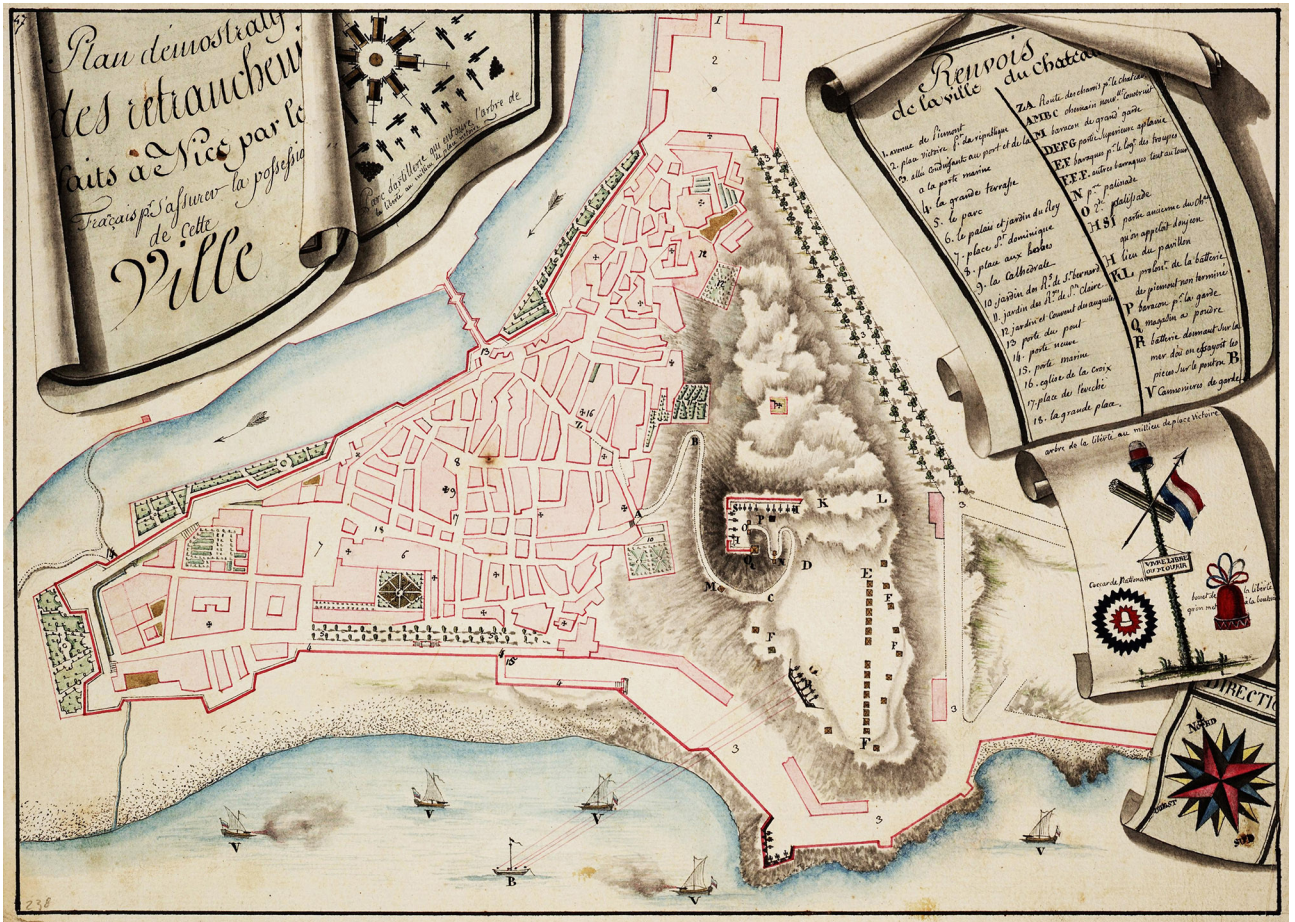 Plan démostratif
des retrancheui
faits à Nice par le
Fraçais pr. S'assurer la possessio
de cette
Ville
Parc d'artillerie qui entoure l'arbre de
la liberté au milieu de place victoire
Renvois
de la ville
du chateau
1. avenue de Piemont
2. place victoire Pt. da république
3. allée conduisant au port et de la
a la porte marine
4. la grande terrasse
5. le parc
6. le palais et jardin du Roy
7. place St. dominique
8. place aux herbes
9. la Cathédrale
10. jardin des Rs. de St. bernard
11. jardin des Rses. de Ste. Claire
12. jardin et Couvent des augustins
13 porte du pont
14. porte neuve
15. porte marine
16. eglise de la croix
17. place de l'eveché
18. la grande place.
ZA Route des chars pr. le chateau
AMBC chemain nouvt. Construit
M baracon de grand garde
DEFG partie Superieure aplanie
EF baraques pr. le logt. des troupes
F.F.F. autres barraques tout autour
N pre. palissade
O 2de. palissade
HSI partie ancienne du Chau.
qu'on appelait donjeon
H lieu du pavillon
KL prolont. de la batterie
de piemont non terminé
P baracon pr. la garde
Q magasin a poudre
R batterie donnant sur la
mer d'où on essayoit les
pieces sur le ponton B
V Cannonieres de garde
arbre de la liberté au millieu de place Victoire
VIVRE LIBRE
OU MOURIR
Cocarde Nationale
bonet de la liberté
qu'on met à la boutonn
DIRECTI
NORD
OUEST
SUD
1
2
3
12
13
14
16
Z
B
A
8
9
7
18
6
10
11
4
15
S
H
K
L
O
P
I
Q
N
D
M
C
E
F
R
V
238